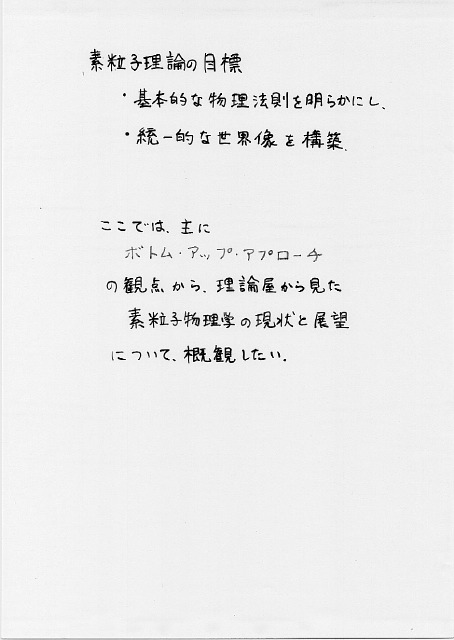 素粒子理論の目標
・基本的な物理法則を明らかにし、
・統一的な世界像を構築.
ここでは、主に
ボトム・アップ・アプローチ
の観点から、理論屋から見た
素粒子物理学の現状と展望
について、概観したい.